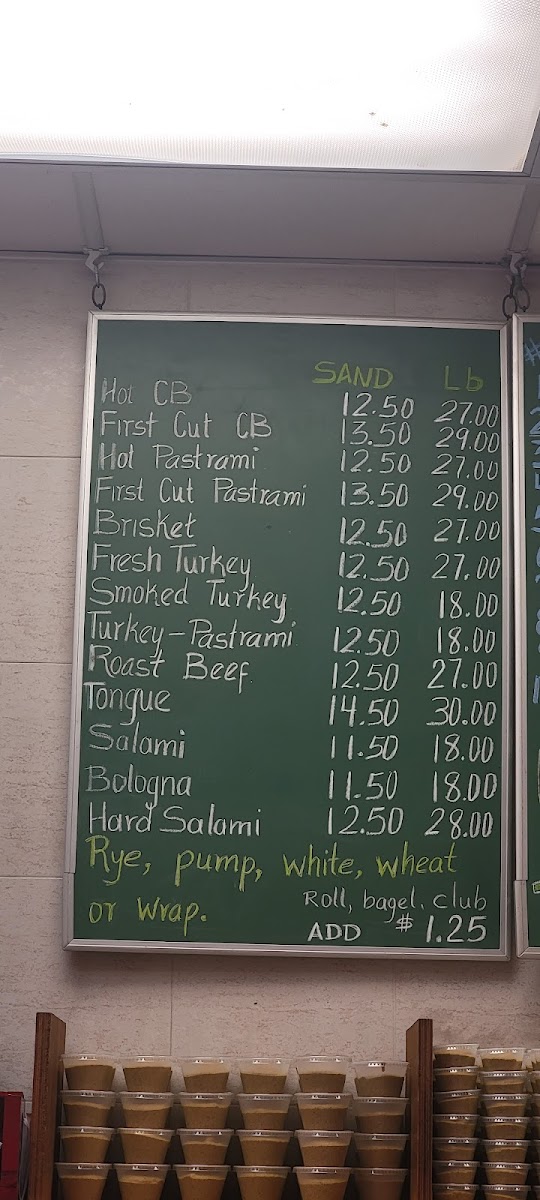 SAND Lb
Hot CB 12.50 27.00
First Cut CB 13.50 29.00
Hot Pastrami 12.50 27.00
First Cut Pastrami 13.50 29.00
Brisket 12.50 27.00
Fresh Turkey 12.50 27.00
Smoked Turkey 12.50 18.00
Turkey-Pastrami 12.50 18.00
Roast Beef 12.50 27.00
Tongue 14.50 30.00
Salami 11.50 18.00
Bologna 11.50 18.00
Hard Salami 12.50 28.00
Rye, pump, white, wheat
or wrap.
Roll, bagel, club
ADD $1.25